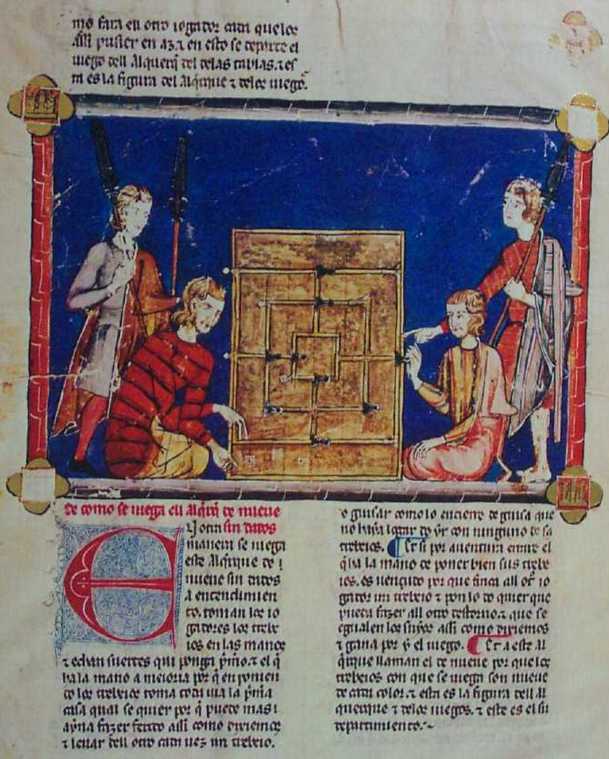 mo fara en otro iogador cada que los
assi pusier en az. & en esto se departe el
iuego dell alquerq̄ del delas tablas. & es
ta es la figura del alq̄rque & delos iuegos.
de como se iuega ell alq̄rq̄ de nueue
Otra sin dados
manera se iuega
este Alq̄rque de
nueue sin dados
a entendimien
to. toman los io
gadores los trebe
ios en las manos
& echan suertes qui ponga p̄mero. & el q̄
ha la mano a meioria por q̄ en ponien
do los trebeios toma toda uia la p̄mera
casa qual se quier por q̄ puede mas
ayna fazer fecho assi como dixiemos
& leuar dell otro cada uez un trebeio.
o guisar como lo encierre de guisa que
no haya logar do yr con ninguno de sos
trebeios. Et si por auentura entre el
q̄ ha la mano de poner bien sus trebe
ios. es uençudo por que finca all otro io
gador un trebeio & pon lo do quier que
pueda fazer all otro destoruo. & que se
egualen los suyos assi como dixiemos
& gana por y el iuego. Et a este al
querque llaman el de nueue por que los
trebeios con que se iuega son nueue
de cada color. & esta es la figura dell al
querque & delos iuegos. & este es el su
departimiento.